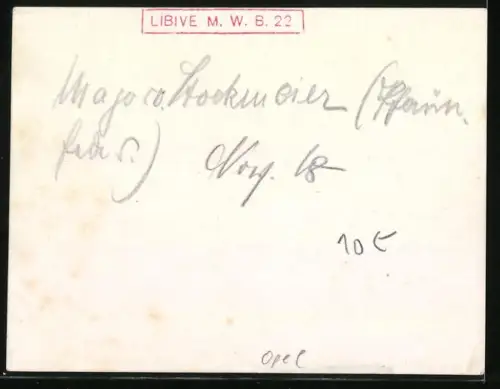 LIBIVE M. W. B. 22
Major v. Stockmeier (
Nov. 18
10 €
Opel